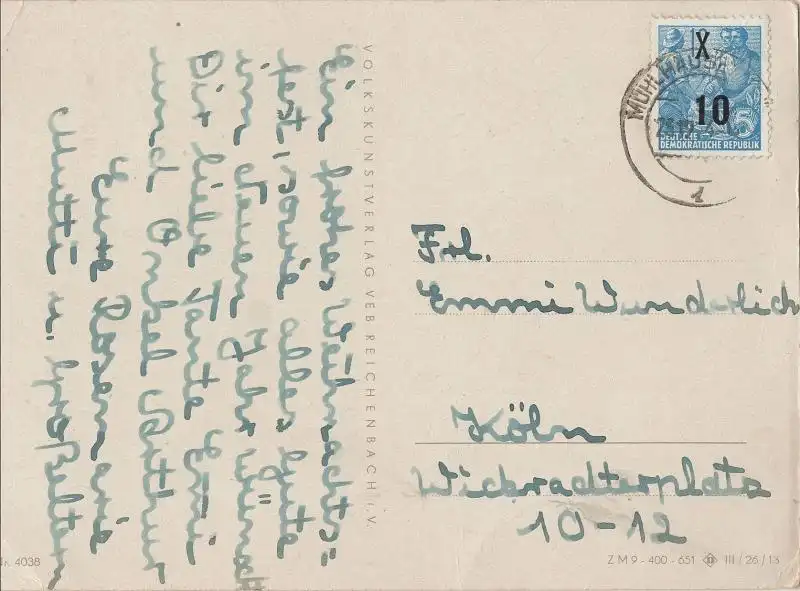 Ein frohes Weihnachts=
fest, sowie alles Gute
im Neuen Jahr wünscht
Dir liebe Tante Emi
und Onkel Arthur
Eure Rosemarie
Mutti u. Großeltern
VOLKSKUNSTVERLAG VEB REICHENBACH i. V.
MÜHLHAUSEN
X
10
5
DEUTSCHE
DEMOKRATISCHE REPUBLIK
1
Frl.
Emmi Wunderlich
Köln
Wickradterplatz
10-12
Nr. 4038
Z M 9 - 400 - 651 III / 26 / 13